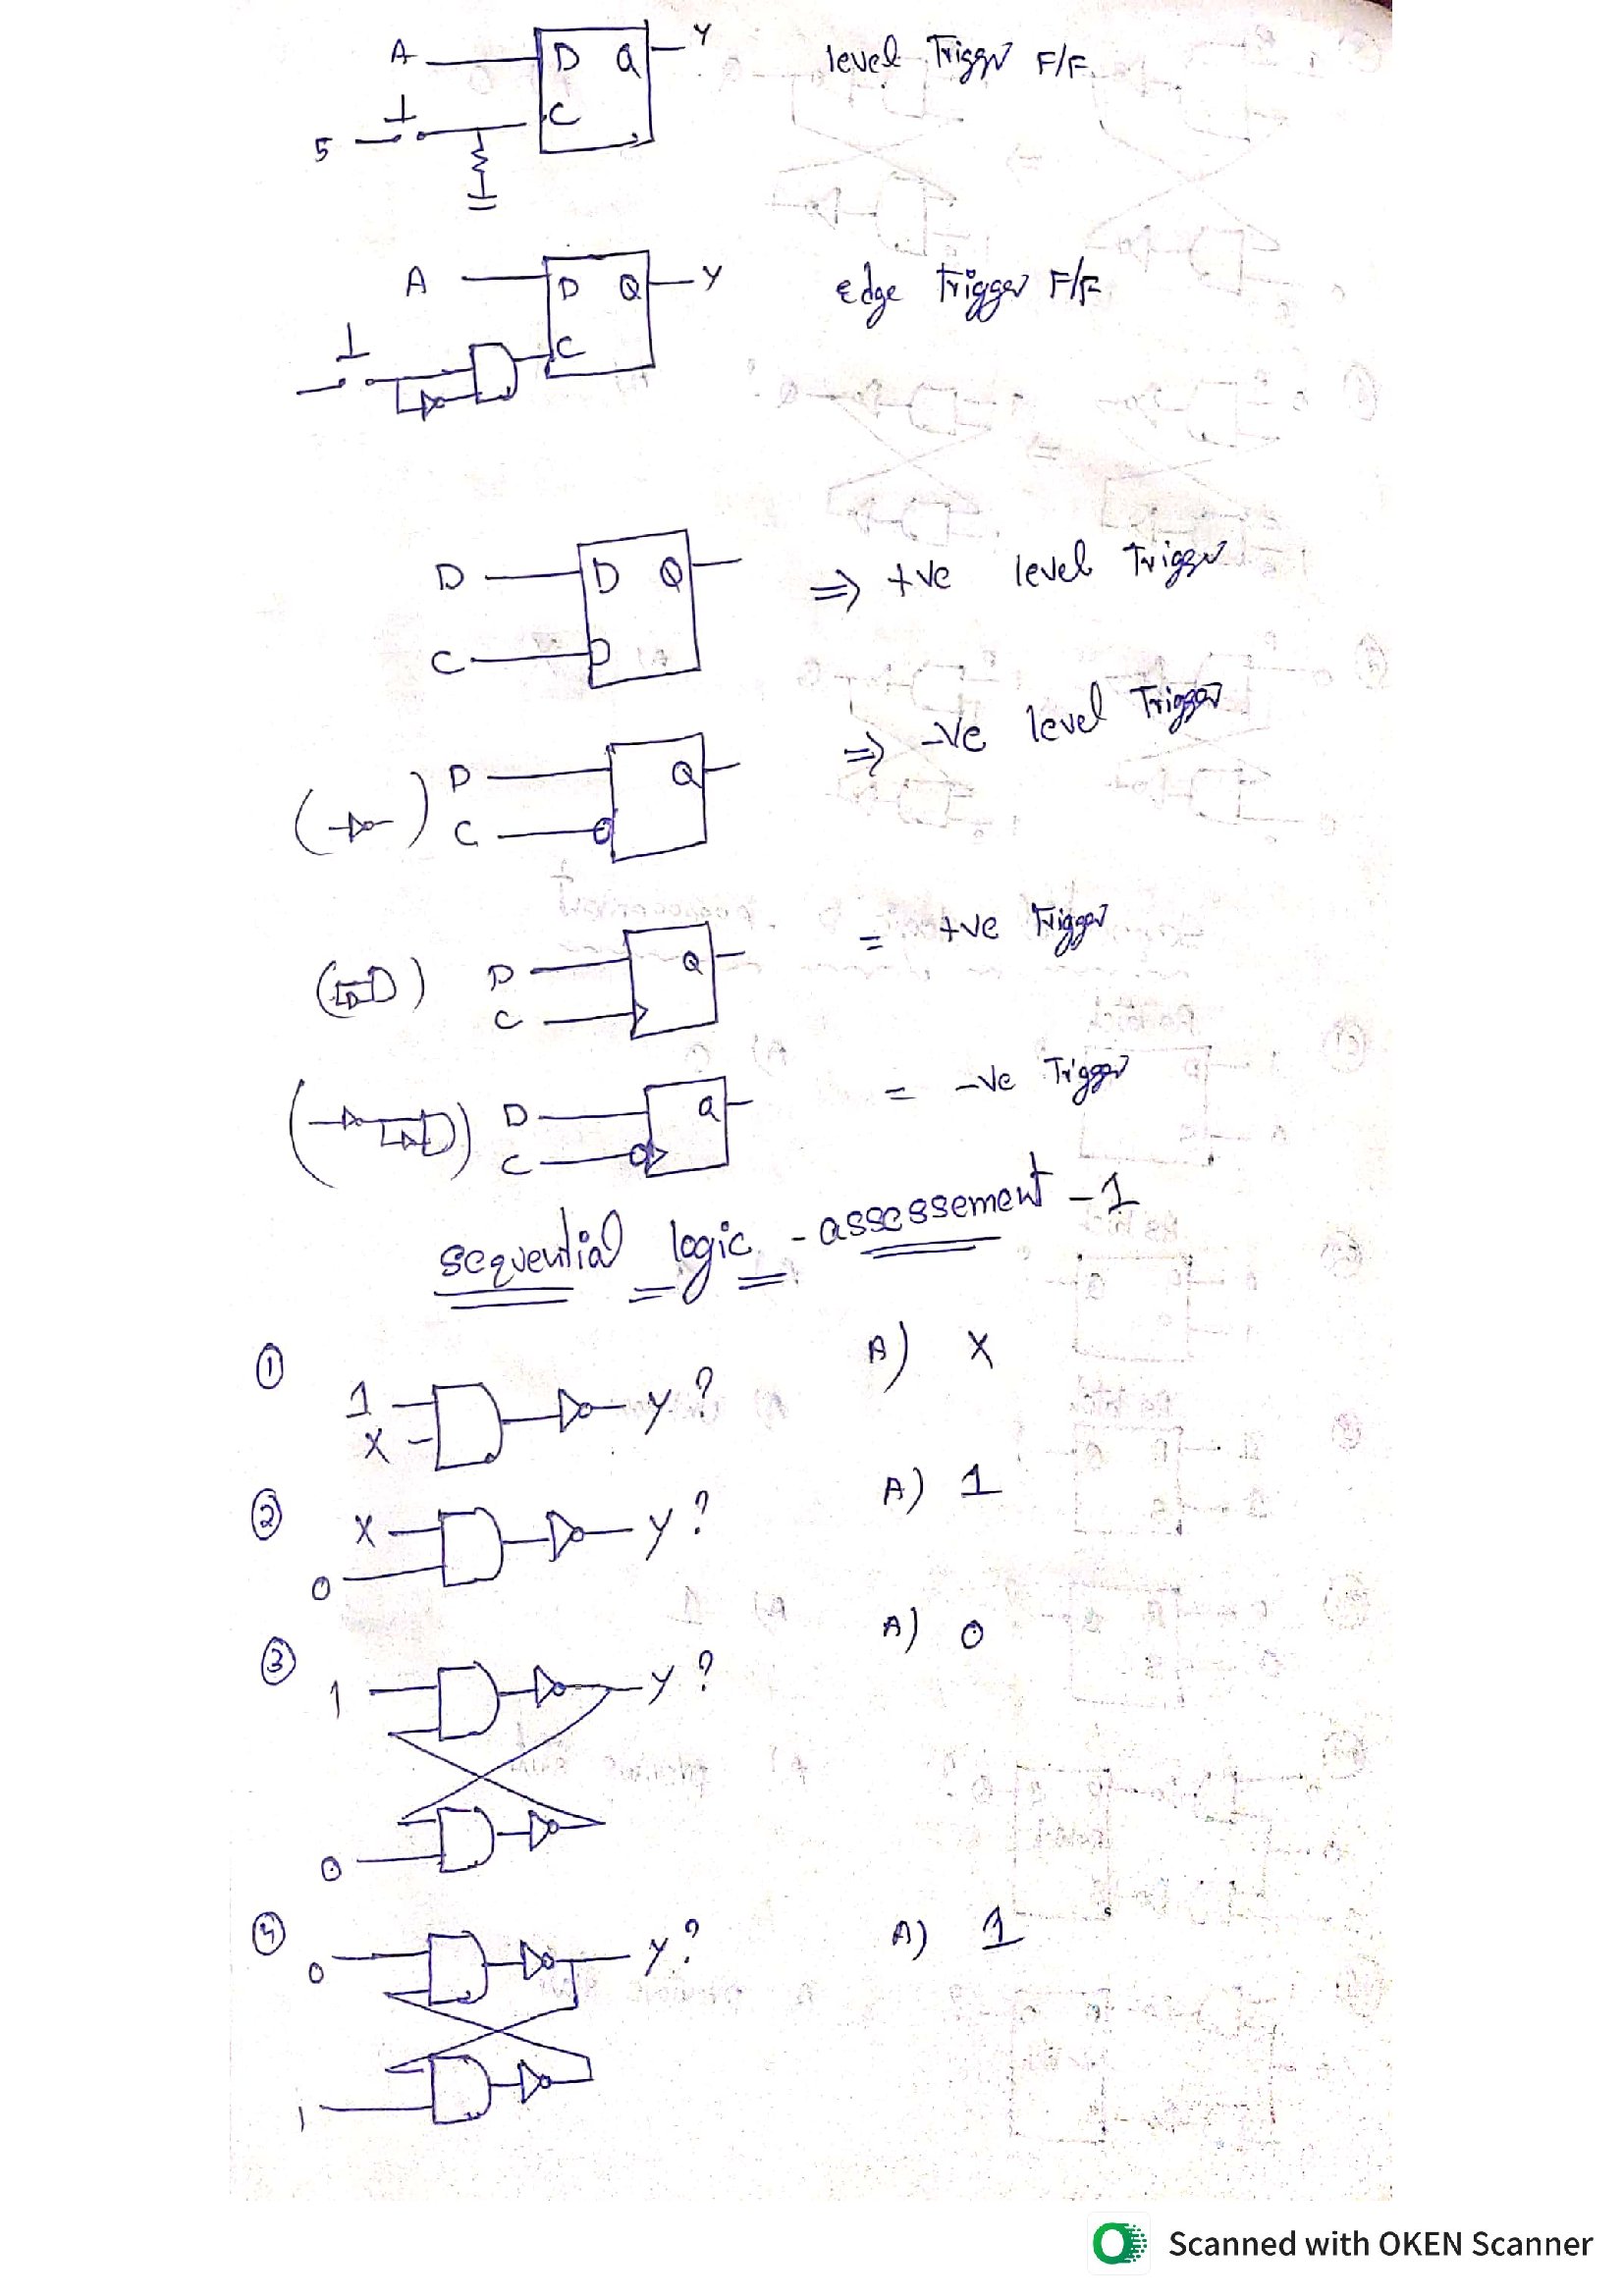 A D Q Y level Trigger F/F
5 C
A D Q Y Edge Trigger F/F
C
D D Q ⇒ +ve level Trigger
C
D Q ⇒ -ve level Trigger
C
D Q = +ve Trigger
C
D Q = -ve Trigger
C
sequential logic - assessement - 1
① 1 X Y? A) X
② X 0 Y? A) 1
③ 1 0 Y? A) 0
④ 0 1 Y? A) 1
Scanned with OKEN Scanner